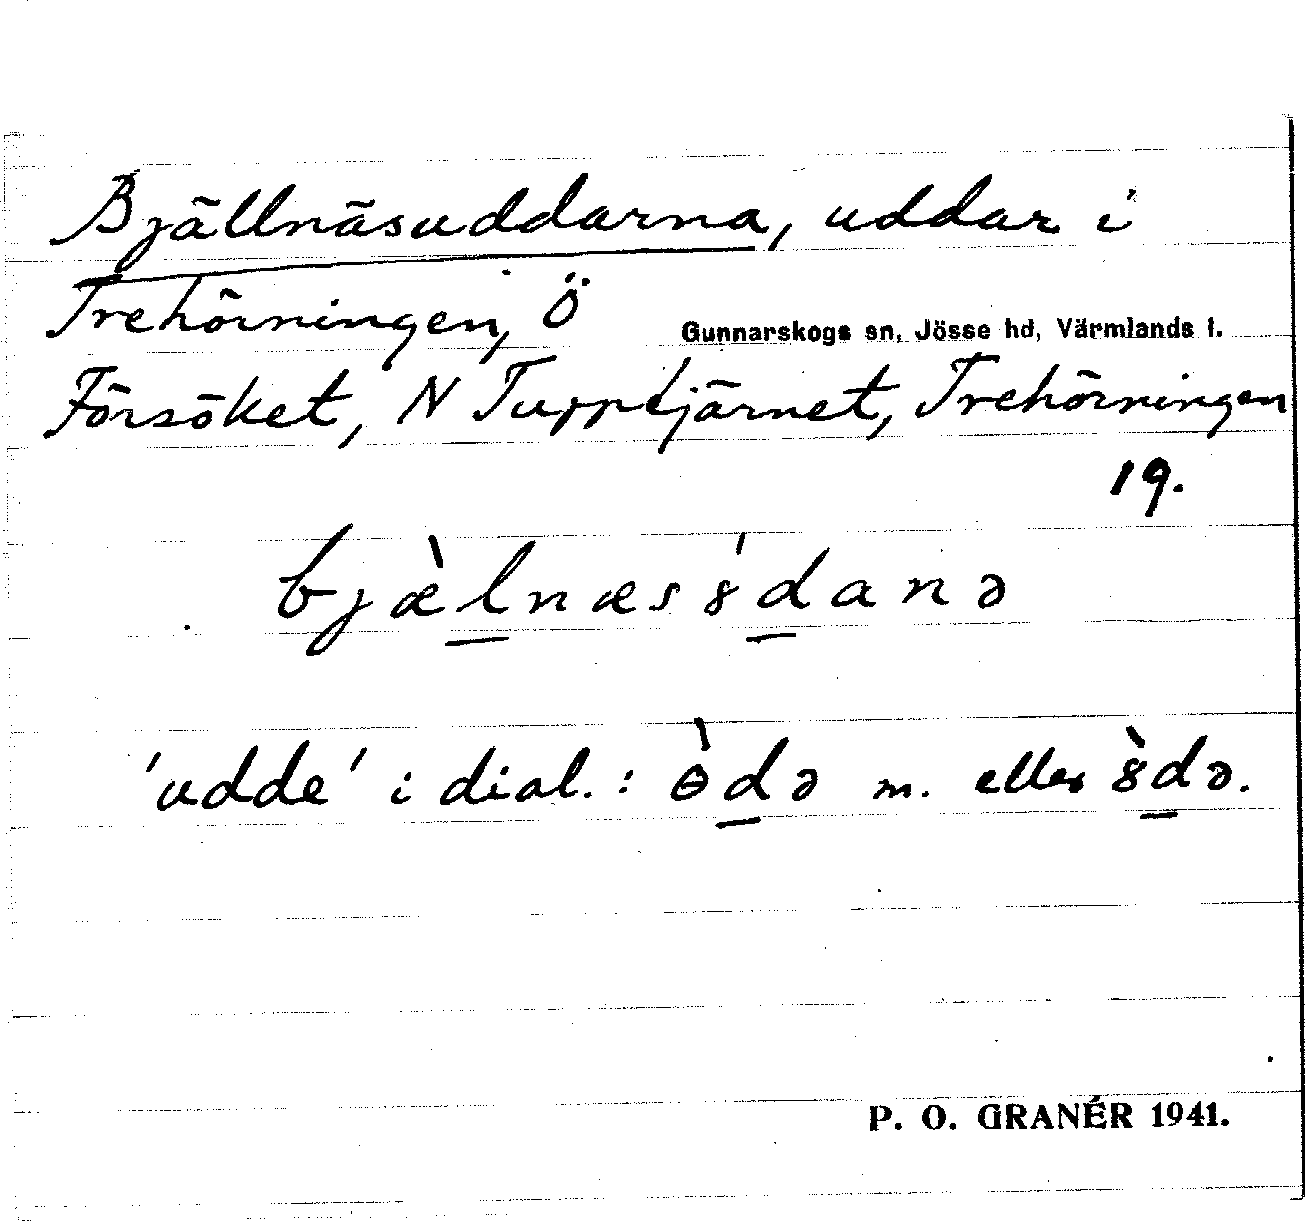 Bjällnäsuddarna, uddar i
Trehörningen, Ö
Gunnarskogs sn, Jösse hd, Värmlands l.
Försöket, N Tupptjärnet, Trehörningen
19.
bjæ̀l̲næs8́d̲anə
'udde' i dial.: ɵ̀d̲ə m. eller 8̀d̲ə.
P. O. GRANÉR 1941.